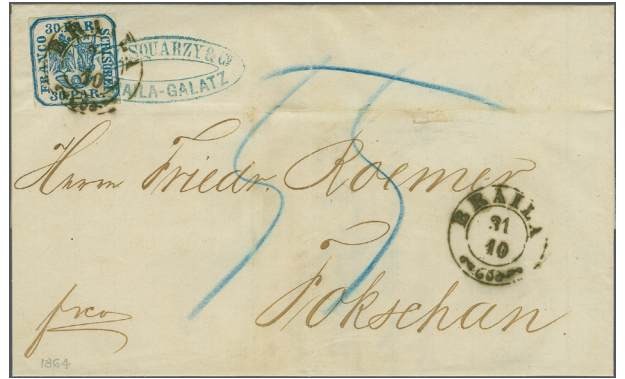 30 PAR.
FRANCO
SCRISOREI
30 PAR.
BRAILA
10
SQUARZY & Co
AILA-GALATZ
Herrn Friedr Roemer
BRAILA
31
10
Fokschan.
frco
1864